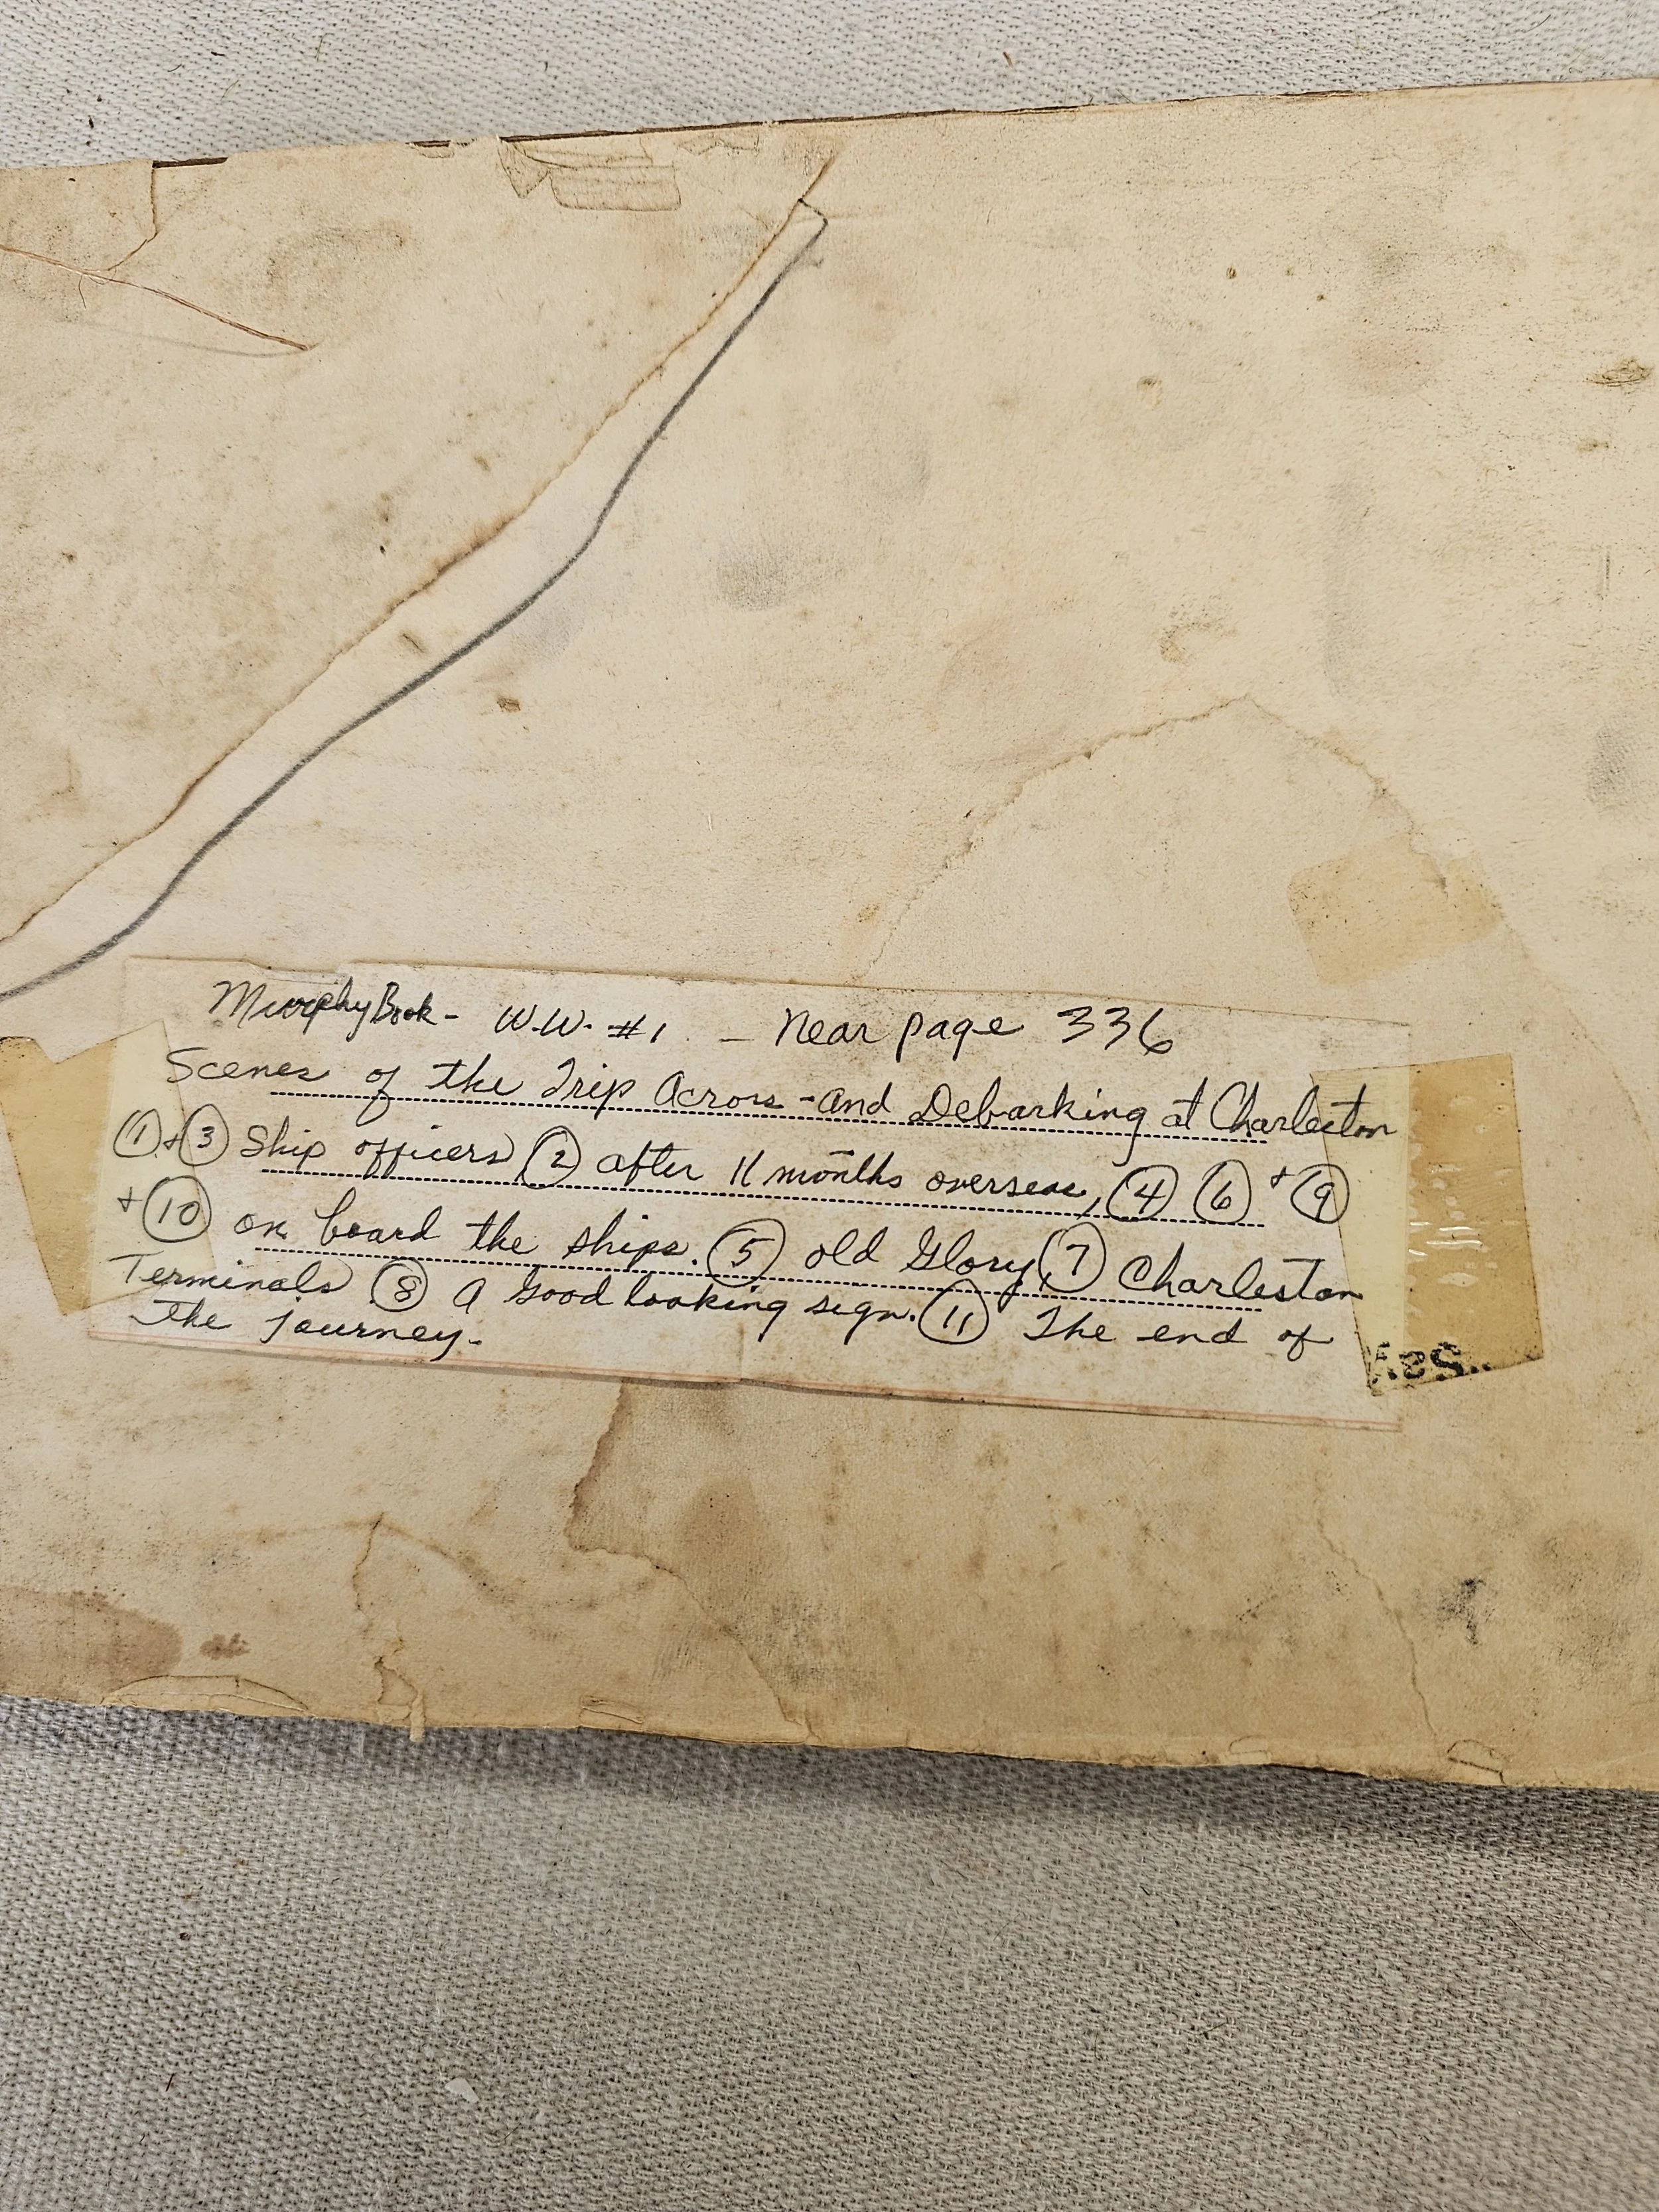 Murphy Book - W.W. #1 - Near page 336
Scenes of the Trip Across - and Debarking at Charleston
① + ③ Ship officers ② after 11 months overseas, ④ ⑥ + ⑨
+ ⑩ on board the ships. ⑤ old Glory, ⑦ Charleston
Terminals ⑧ A Good looking sign. ⑪ The end of
the journey.